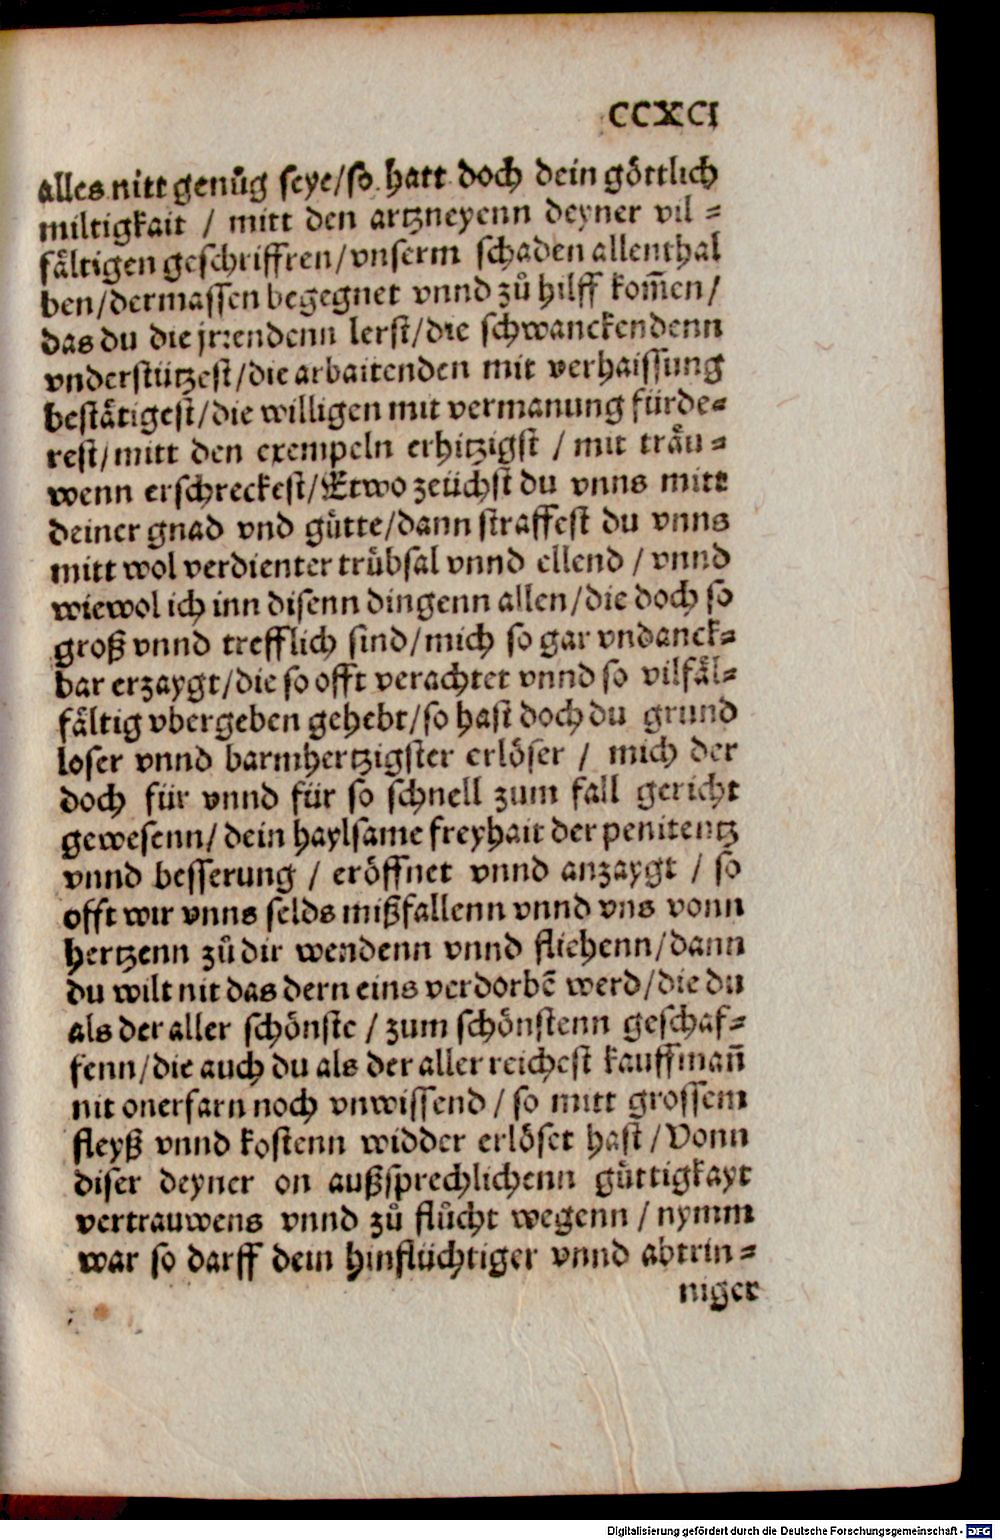 CCXCI
alles nitt genůg seye/so hatt doch dein göttlich
miltigkait / mitt den artzneyenn deyner vil =
fåltigen geschrifften/vnserm schaden allenthal
ben/dermassen begegnet vnnd zů hilff kom̄en/
das du die jrrendenn lerst/die schwanckendenn
vnderstützest/die arbaitenden mit verhaissung
bestätigest/die willigen mit vermanung fürde=
rest/mitt den exempeln erhitzigst / mit tråu =
wenn erschreckest/Etwo zeüchst du vnns mitt
deiner gnad vnd gůtte/dann straffest du vnns
mitt wol verdienter trůbsal vnnd ellend / vnnd
wiewol ich inn disenn dingenn allen/die doch so
groß vnnd trefflich sind/mich so gar vndanck=
bar erzaygt/die so offt verachtet vnnd so vilfål=
fåltig vbergeben gehebt/so hast doch du grund
loser vnnd barmhertzigster erlöser / mich der
doch für vnnd für so schnell zum fall gericht
gewesenn/ dein haylsame freyhait der penitentz
vnnd besserung / eröffnet vnnd anzaygt / so
offt wir vnns selds mißfallenn vnnd vns vonn
hertzenn zů dir wendenn vnnd fliehenn/dann
du wilt nit das dern eins verdorbē werd/die du
als der aller schönste / zum schönstenn geschaf=
fenn/die auch du als der aller reichest kauffman̄
nit onerfarn noch vnwissend / so mitt grossem
fleyß vnnd kostenn widder erlöset hast/Vonn
diser deyner on außsprechlichenn gůttigkayt
vertrauwens vnnd zů flůcht wegenn / nymm
war so darff dein hinflüchtiger vnnd abtrin=
niger
Digitalisierung gefördert durch die Deutsche Forschungsgemeinschaft - DFG